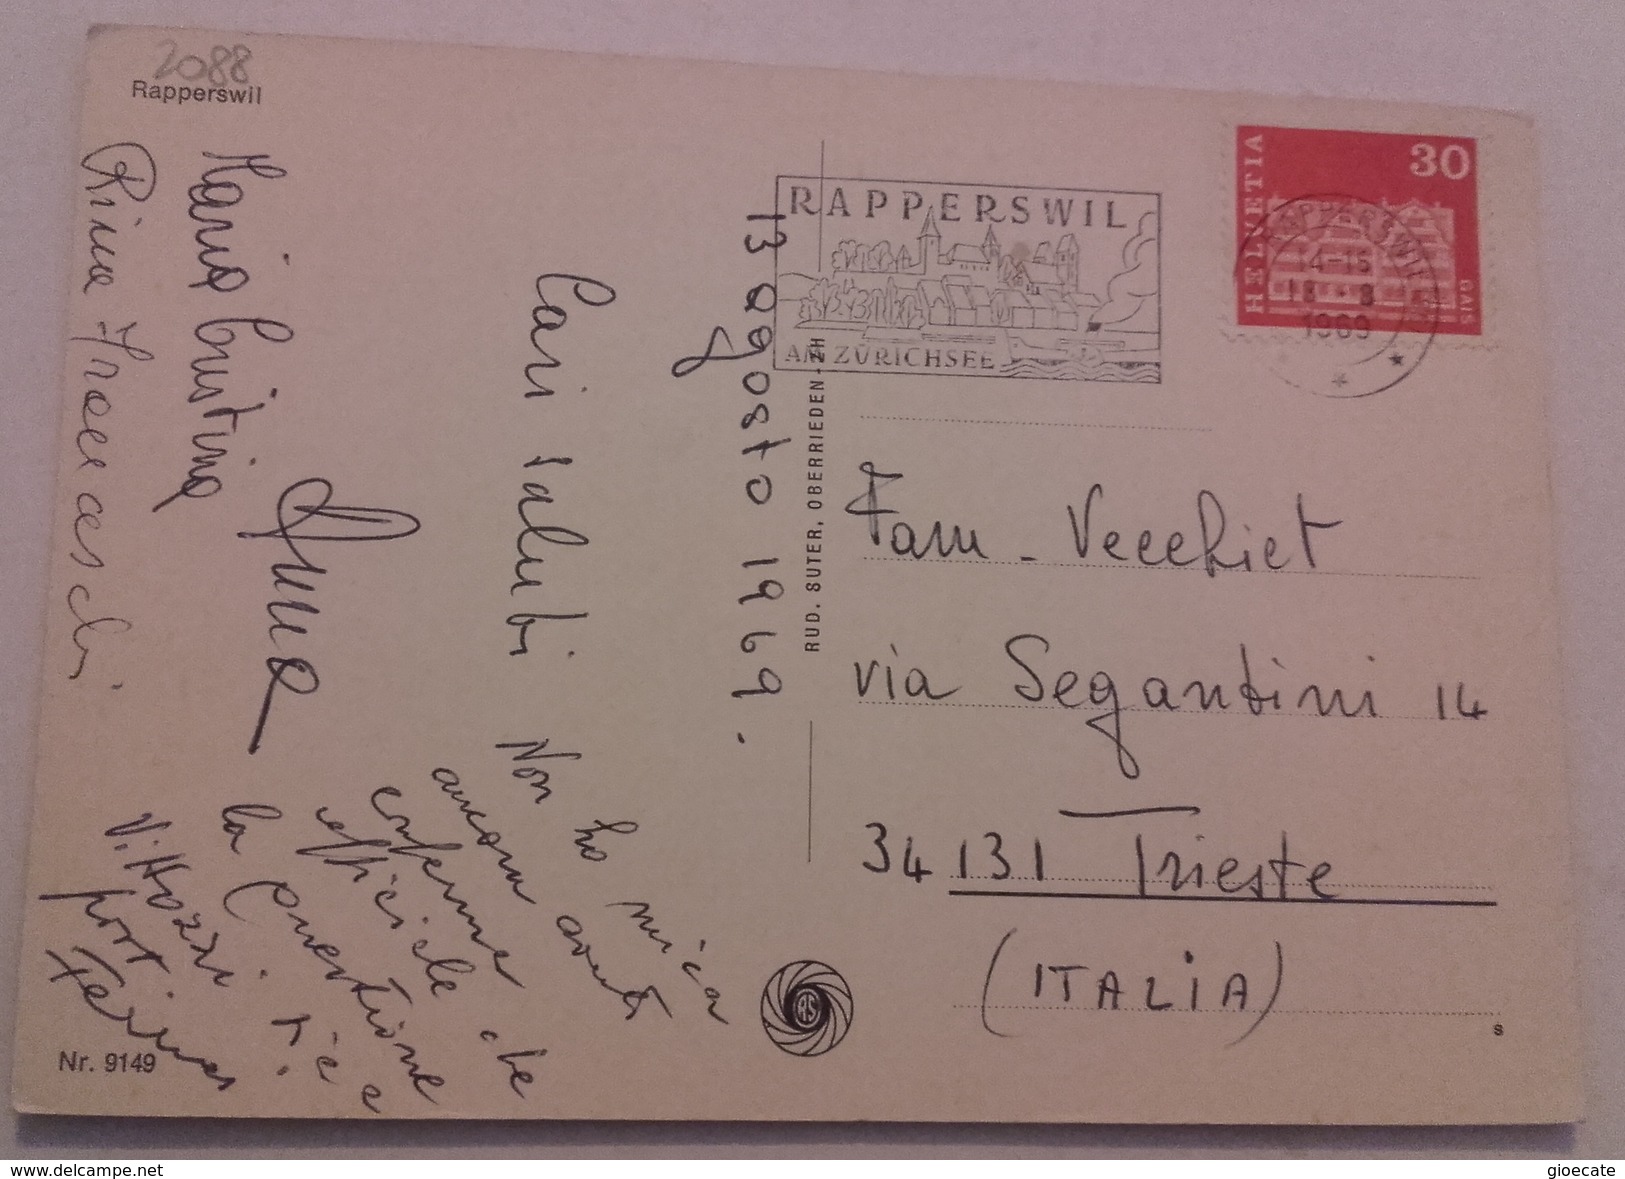 2088
Rapperswil
13 agosto 1969.
Cari saluti
Anna
Maria Cristina
Rina
Non ho mica
ancora avuto
conferma
ufficiale che
la questione
Vittozzi
RAPPERSWIL
AM ZÜRICHSEE
HELVETIA
30
GAIS
RAPPERSWIL
14-15
18.-8
1969
RUD. SUTER, OBERRIEDEN-ZH
Fam. Vecchiet
via Segantini 14
34131 Trieste
(ITALIA)
RS
s
Nr. 9149
www.delcampe.net
gioecate